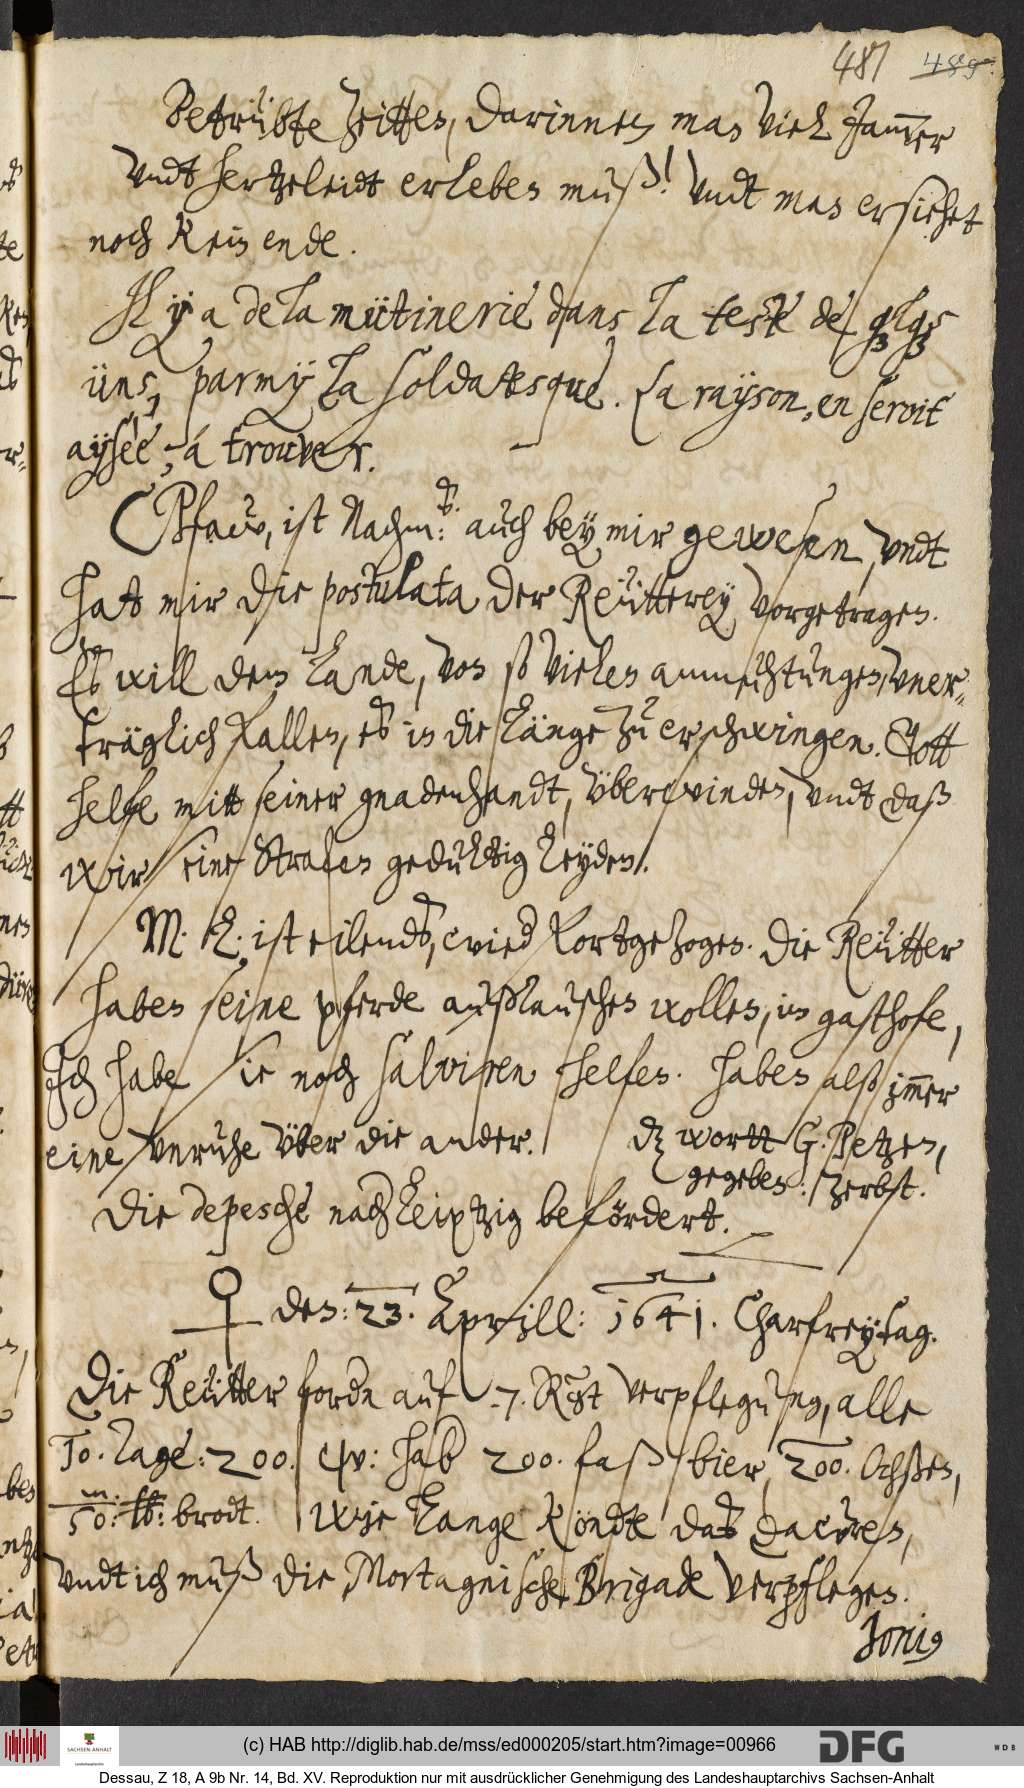 481 489.
Betrübte zeitten, darinnen man viel Jam̅er
vndt hertzeleidt erleben muß! vndt man ersiehet
noch kein ende.
Il ÿ a de la mütinerie dans la teste de qlqs
üns, parmÿ la soldatesque. La raÿson, en seroit
aÿsèe, à trouver.
Pfaw, ist Nachm: auch beÿ mir gewesen, vndt
hat mir die postulata der Reütterey vorgetragen.
Es will dem Lande, von so vielen anmuhtungen, vner-
träglich fallen, es in die länge zu erschwingen. Gott
helfe mitt seiner gnadenhandt, überwinden, vndt daß
wir seine Strafen gedultig leÿden.
M. L. ist eilends, wied fortgezogen. Die Reütter
haben seine pferde außlauschen wollen, im gasthofe,
Ich habe sie noch salviren helfen. haben alß im̅er
eine vnruhe über die ander. dz wortt G. Petzen,
gegeben: Zerbst.
Die depesche nach Leiptzig befördert.
♀ den: 23. Aprill: 1641. Charfreÿtag.
Die Reütter fordn auf 7. Rgt verpflegung, alle
10. Tage: 200. hab 200. faß bier, 200. Ochßen,
m/50: lb: brodt. Wie lange köndte das dawren,
vndt ich muß die Mortagnische Brigade verpflegen.
Jonig
(c) HAB http://diglib.hab.de/mss/ed000205/start.htm?image=00966
SACHSEN-ANHALT
DFG
WDB
Dessau, Z 18, A 9b Nr. 14, Bd. XV. Reproduktion nur mit ausdrücklicher Genehmigung des Landeshauptarchivs Sachsen-Anhalt